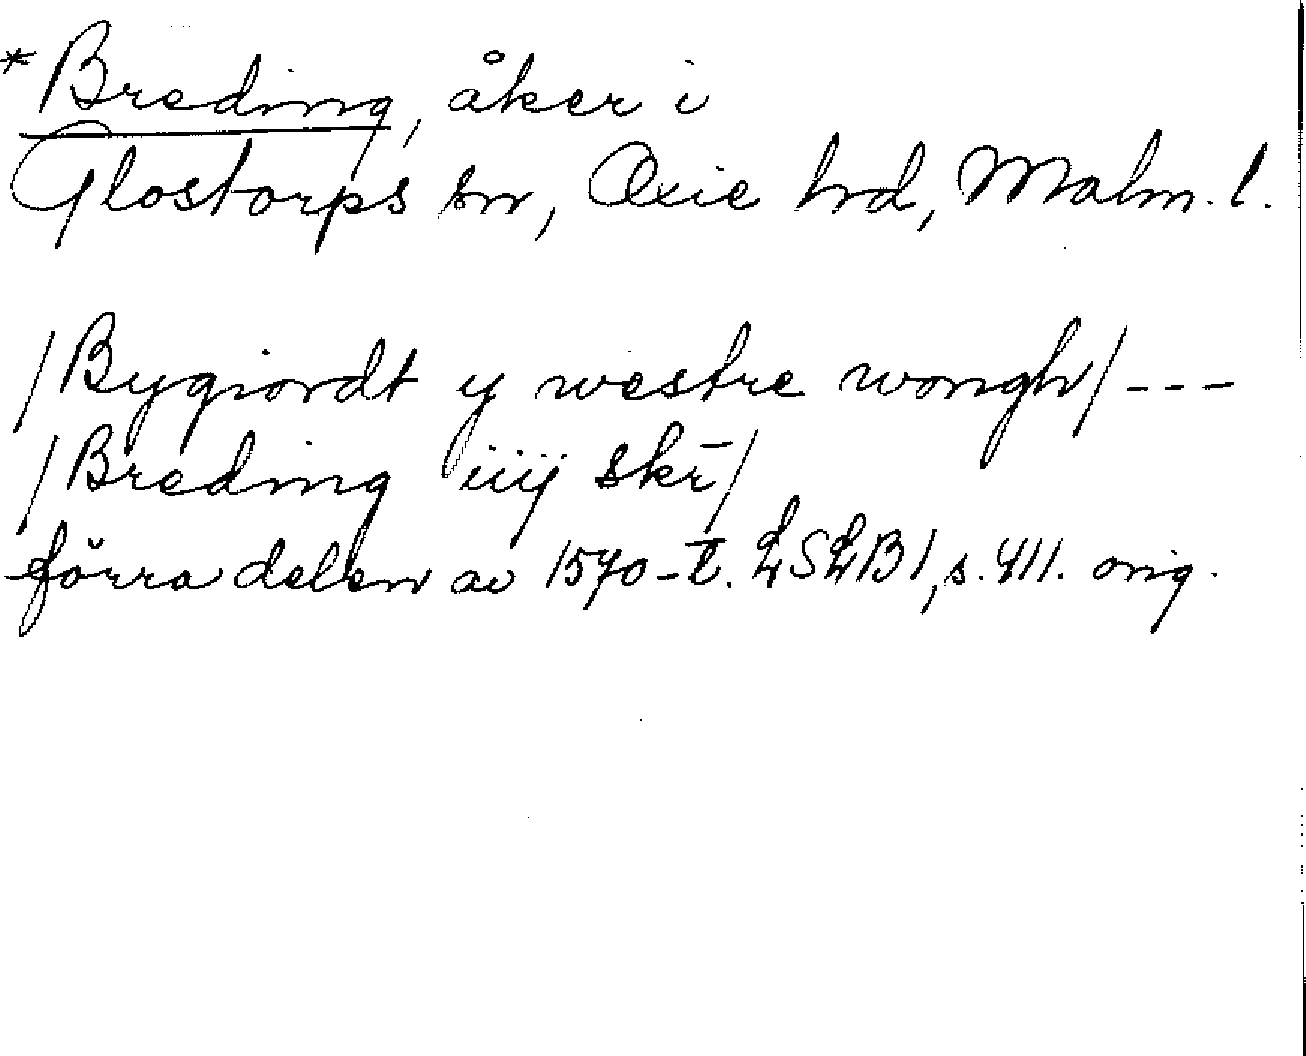 *Breding, åker i
Glostorps sn, Oxie hd, Malm. l.
/Bygiordt y westre wongh/ ---
/Breding iiij skr̄/
förra delen av 1570-t. LSLB1, s. 411. orig.